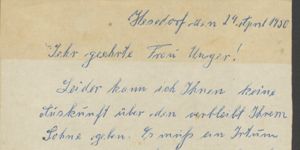 Hesedorf den 24 April 1950
Sehr geehrte Frau Unger!
Leider kann ich Ihnen keine
Auskunft über den verbleib Ihrem
Sohne geben. Es muß ein Irtum